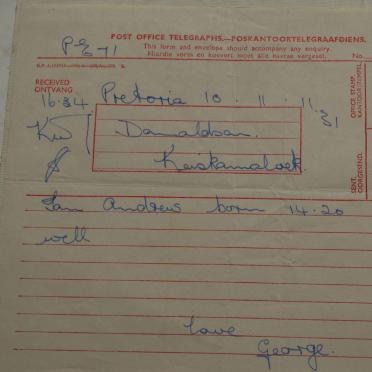 P-E-1
POST OFFICE TELEGRAPHS.—POSKANTOORTELEGRAAFDIENS.
This form and envelope should accompany any enquiry.
Hierdie vorm en koevert moet alle navrae vergesel. No.
RECEIVED
ONTVANG
OFFICE STAMP.
KANTOOR-STEMPEL
16.34 Pretoria 10 . 11 . 11.31
Donaldson.
Keiskamahoek.
SENT.
OORGESEIND.
Ian Andrew born 14.20
well
Love
George.